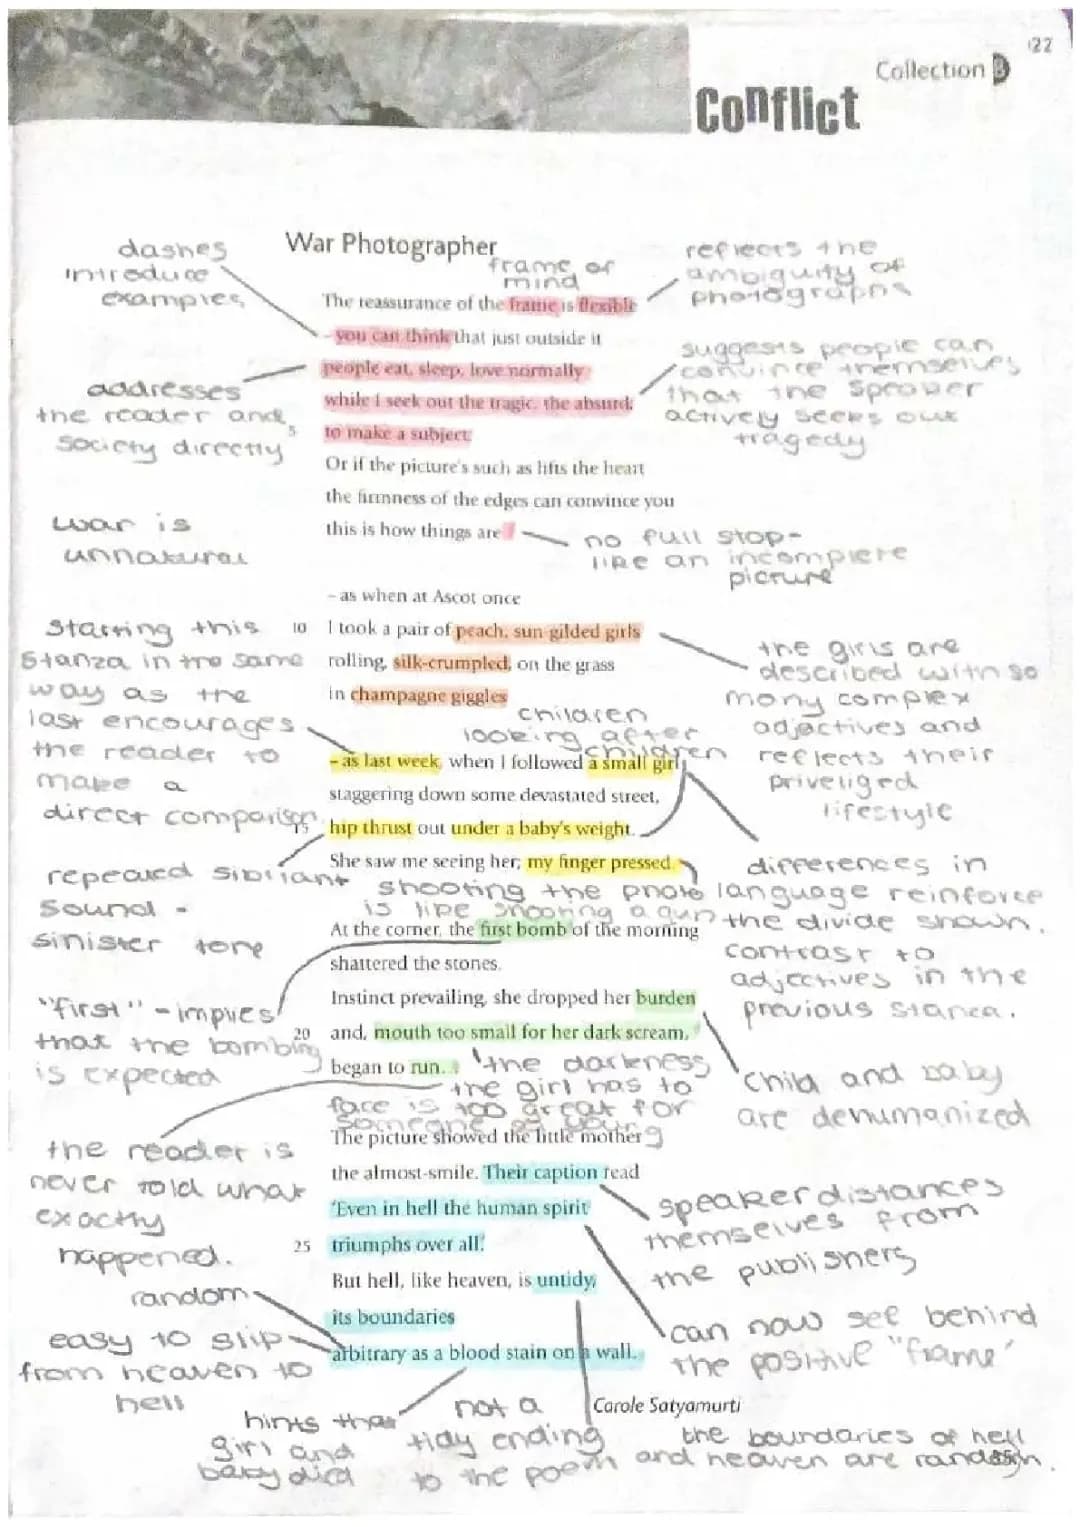 122
Collection B
Conflict
War Photographer
dashes
introduce
examples
frame of
mind
reflects the
ambiguity of
photographs
The reassurance of the frame is flexible
- you can think that just outside it
people eat, sleep, love normally
while I seek out the tragic, the absurd,
5 to make a subject.
Or if the picture's such as lifts the heart
the firmness of the edges can convince you
this is how things are
addresses
the reader and
society directly
suggests people can
convince themselves
that the speaker
actively seeks out
tragedy
war is
unnatural
no full stop-
like an incomplete
picture
- as when at Ascot once
10 I took a pair of peach, sun-gilded girls
rolling, silk-crumpled, on the grass
in champagne giggles
starting this
stanza in the same
way as the
last encourages
the reader to
make a
direct comparison
the girls are
described with so
many complex
adjectives and
reflects their
priveliged
lifestyle
children
looking after
children
- as last week, when I followed a small girl
staggering down some devastated street,
15 hip thrust out under a baby's weight.
She saw me seeing her; my finger pressed.
repeated sibilant
sound -
sinister tone
shooting the photo
is like shooting a gun
differences in
language reinforce
the divide shown.
contrast to
adjectives in the
previous stanza.
At the corner, the first bomb of the morning
shattered the stones.
Instinct prevailing, she dropped her burden
20 and, mouth too small for her dark scream,
began to run...
"first" - implies
that the bombing
is expected
'the darkness
the girl has to
face is too great for
someone so young
child and baby
are dehumanized
The picture showed the little mother
the almost-smile. Their caption read
'Even in hell the human spirit
25 triumphs over all.'
But hell, like heaven, is untidy,
its boundaries
arbitrary as a blood stain on a wall.
the reader is
never told what
exactly
happened.
random
easy to slip
from heaven to
hell
speaker distances
themselves from
the publishers
can now see behind
the positive "frame"
Carole Satyamurti
hints that
girl and
baby died
not a
tidy ending
to the poem
the boundaries of hell
and heaven are random.